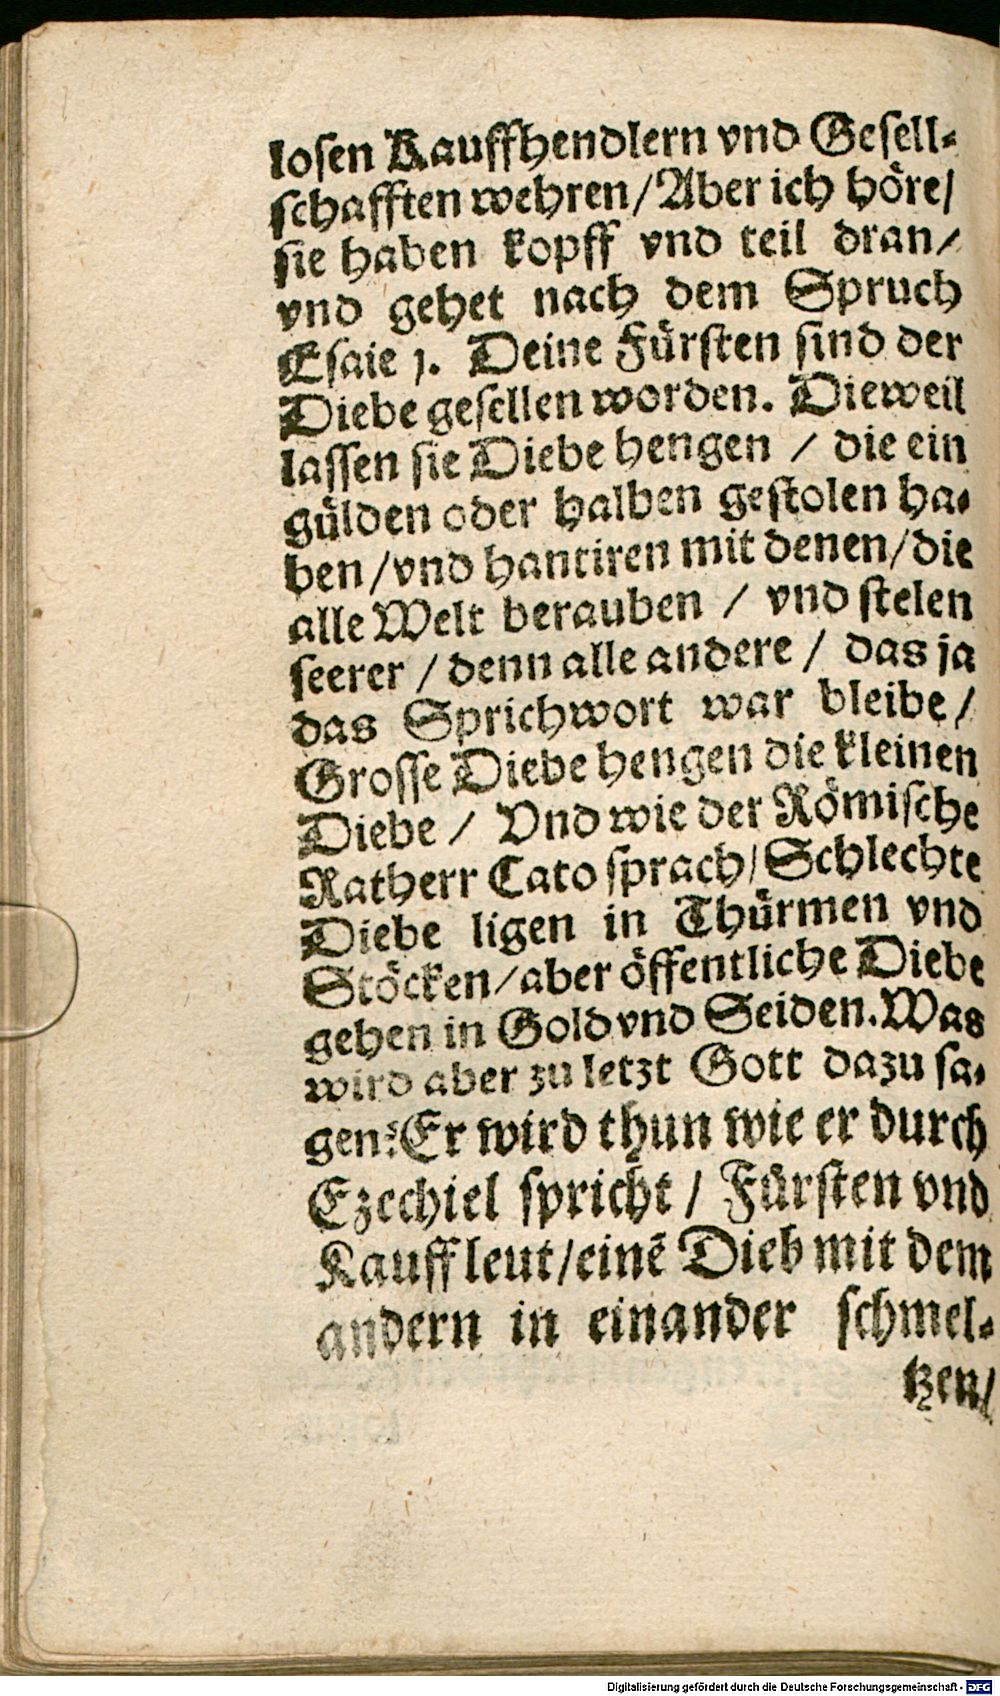 losen Kauffhendlern vnd Gesell-
schafften wehren/Aber ich höre/
sie haben kopff vnd teil dran/
vnd gehet nach dem Spruch
Esaie 1. Deine Fürsten sind der
Diebe gesellen worden. Dieweil
lassen sie Diebe hengen / die ein
gülden oder halben gestolen ha-
ben/vnd hantiren mit denen/die
alle Welt berauben / vnd stelen
seerer / denn alle andere / das ja
das Sprichwort war bleibe/
Grosse Diebe hengen die kleinen
Diebe / Vnd wie der Römische
Ratherr Cato sprach/Schlechte
Diebe ligen in Thürmen vnd
Stöcken/aber öffentliche Diebe
gehen in Gold vnd Seiden.Was
wird aber zu letzt Gott dazu sa-
gen?Er wird thun wie er durch
Ezechiel spricht / Fürsten vnd
Kauffleut/einē Dieb mit dem
andern in einander schmel-
tzen/
Digitalisierung gefördert durch die Deutsche Forschungsgemeinschaft - DFG